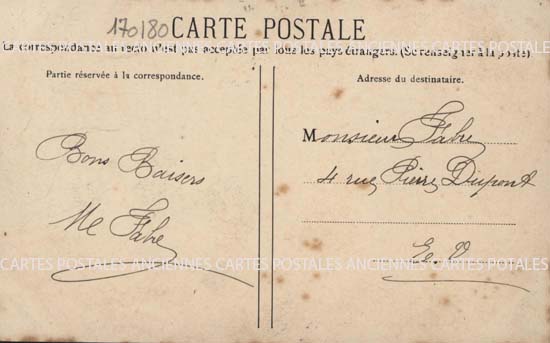 170180
CARTE POSTALE
La correspondance au recto n'est pas acceptée par tous les pays étrangers. (Se renseigner à la poste).
Partie réservée à la correspondance.
Bons Baisers
Me Fabre
Adresse du destinataire.
Monsieur Fabre
4 rue Pierre Dupont
E. V.
CARTES POSTALES ANCIENNES CARTES POSTALES ANCIENNES CARTES POTALES